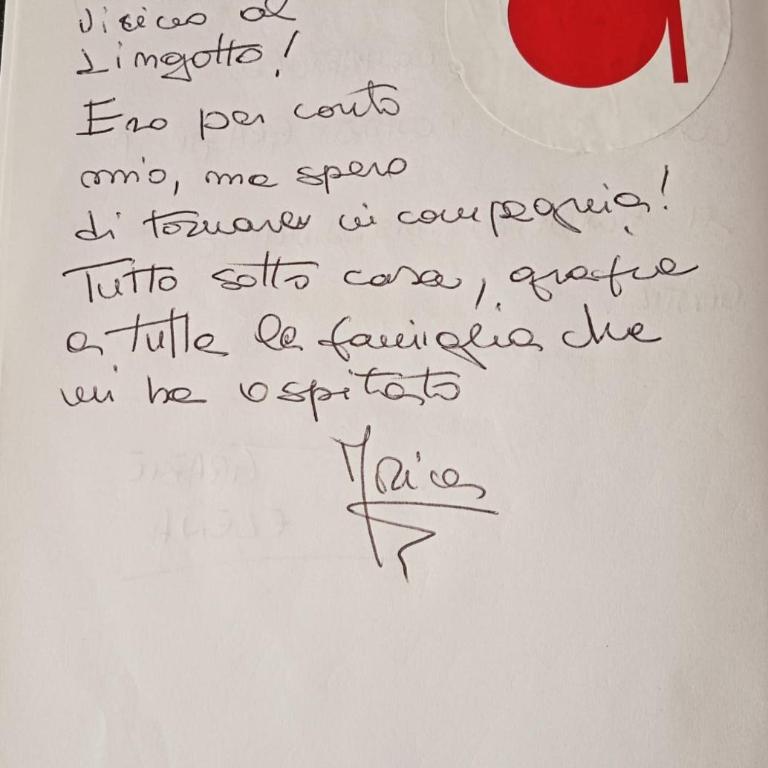 vicino al
Lingotto!
Ero per conto
mio, ma spero
di tornare in compagnia!
Tutto sotto casa, grazie
a tutta la famiglia che
mi ha ospitato